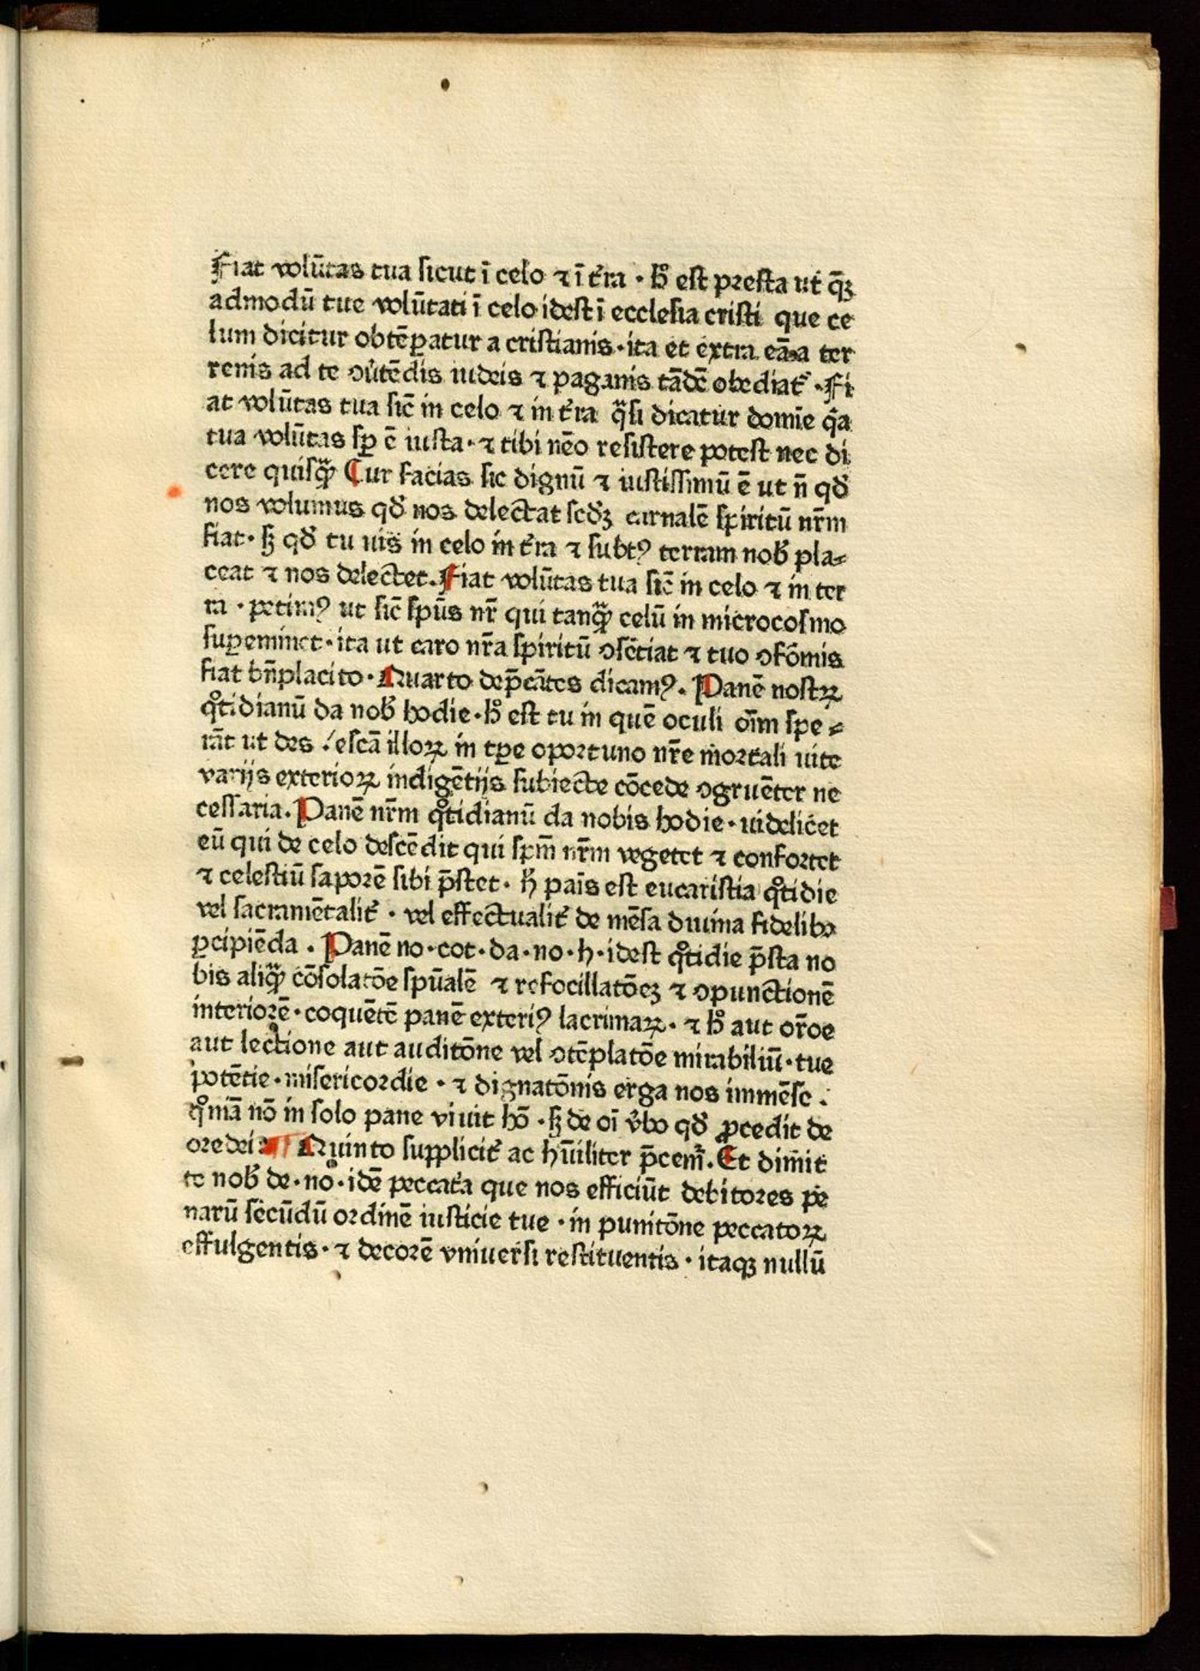 Fiat volūtas tua sicut ī celo ⁊ ī t̄ra · h̊ est presta ut q̄ꝫ
admodū tue volūtati ī celo idest ī ecclesia cristi que ce
lum dicitur obtēꝑatur a cristianis · ita et extra eā a ter
renis ad te ꝯu̓tēdis iudeis ⁊ paganis tādē obediat᷑ · Fi
at volūtas tua sic̄ in celo ⁊ in t̄ra q̄si dicatur domīe q̄a
tua volūtas sꝑ ē iusta · ⁊ tibi nēo resistere potest nec di
cere quisq̄ꝫ Cur facias sic dignū ⁊ iustissimū ē ut n̄ qđ
nos volumus qđ nos delectat scđꝫ carnalē spiritū nr̄m
fiat · sꝫ qđ tu uis in celo in t̄ra ⁊ subtꝰ terram nob̓ pla⸗
ceat ⁊ nos delectet. Fiat volūtas tua sic̄ in celo ⁊ in ter
ra · petimꝰ ut sic̄ spūs nr̄ qui tanq̄ꝫ celū in microcosmo
suꝑeminet · ita ut caro nr̄a spiritū ꝯsētiat ⁊ tuo ꝯfōmis
fiat bn̄placito · Quarto dep̄cātes dicamꝰ. Panē nostꝝ
q̊tidianū da nob̓ hodie · h̊ est tu in quē oculi oīm spe⸗
rāt ut des escā illoꝝ in tꝑe oportuno nr̄e mortali uite
varijs exterioꝝ indigētijs subiecte cōcede ꝯgruēter ne
cessaria. Panē nr̄m q̊tidianū da nobis hodie · uidelicet
eū qui de celo descēdit qui spm̄ nr̄m vegetet ⁊ confortet
⁊ celestiū saporē sibi p̄stet · h̄ paīs est eucaristia q̊tidie
vel sacramētalit᷑ · vel effectualit᷑ de mēsa diuina fidelibꝰ
ꝑcipiēda . Panē no · cot · da · no · h · idest q̊tidie p̄sta no
bis aliq̄ꝫ cōsolatōe spūalē ⁊ refocillatōeꝫ ⁊ ꝯpunctionē
interiorē · coquētē panē exteriꝰ lacrimaꝝ · ⁊ h̊ aut or̄oe
aut lectione aut auditōne vel ꝯtēplatōe mirabiliū · tue
potētie · misericordie · ⁊ dignatōnis erga nos immēse .
q̊mā nō in solo pane viuit hō · sꝫ de oī v̓bo qđ ꝓcedit de
ore dei Quinto supplicit᷑ ac hūiliter p̄cem᷑. Et dimit
te nob̓ de · no · idē peccata que nos efficiūt debitores pe
narū secūdū ordinē iusticie tue · in punitōne peccatoꝝ
effulgentis · ⁊ decorē vniuersi restituentis · itaqꝫ nullū